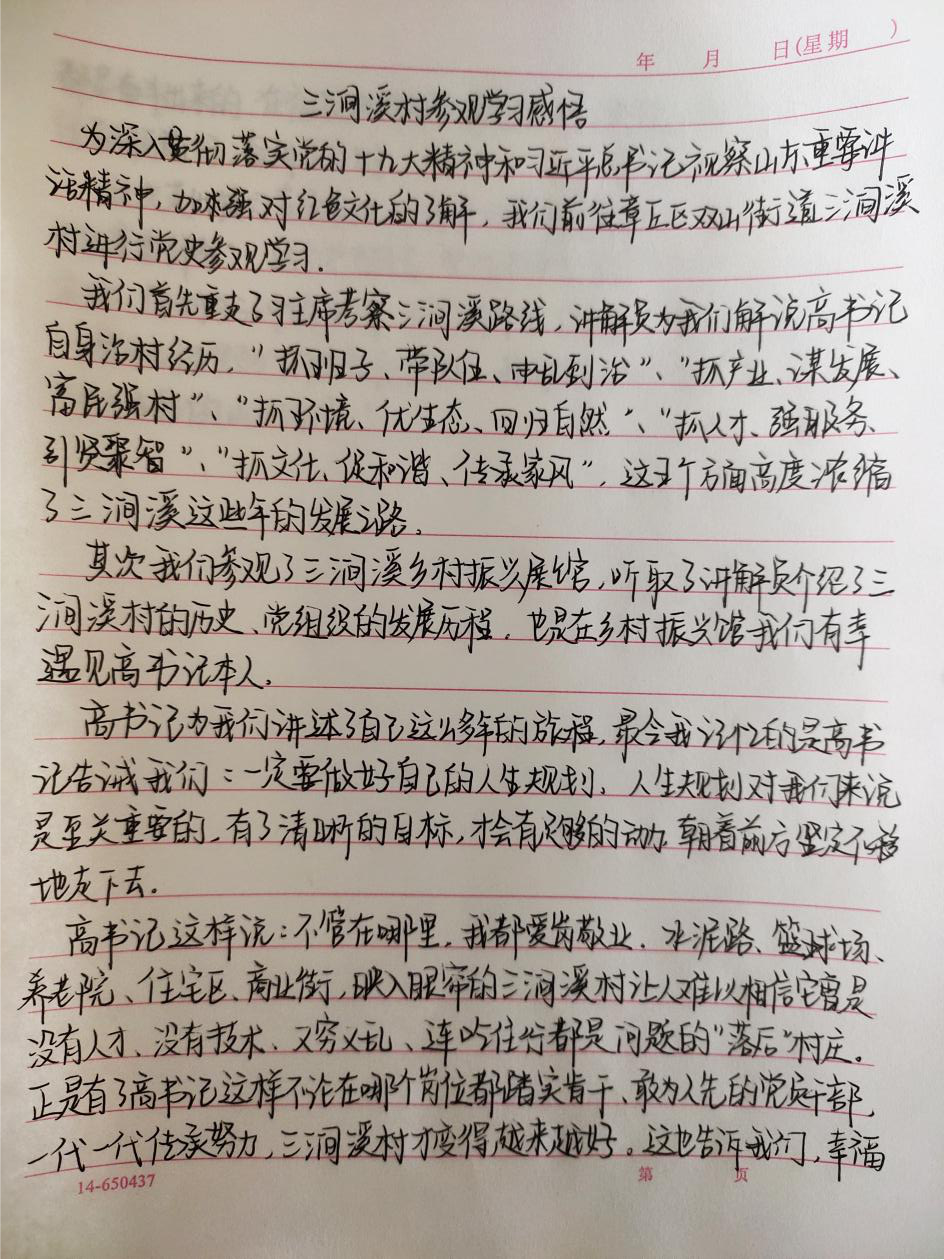 年 月 日(星期 )
三涧溪村参观学习感悟
为深入贯彻落实党的十九大精神和习近平总书记视察山东重要讲
话精神，加强对红色文化的了解，我们前往章丘区双山街道三涧溪
村进行党史参观学习.
我们首先重走了习主席考察三涧溪路线，讲解员为我们解说高书记
自身治村经历，"抓班子、带队伍、由乱到治"、"抓产业、谋发展、
富民强村"、"抓环境、优生态、回归自然"、"抓人才、强服务、
引贤聚智"、"抓文化、促和谐、传承家风"，这五个方面高度浓缩
了三涧溪这些年的发展之路。
其次我们参观了三涧溪乡村振兴展馆，听取了讲解员介绍了三
涧溪村的历史、党组织的发展历程，也是在乡村振兴馆我们有幸
遇见高书记本人。
高书记为我们讲述了自己这么多年的旅程，最令我记忆的是高书
记告诫我们：一定要做好自己的人生规划，人生规划对我们来说
是至关重要的，有了清晰的目标，才会有足够的动力朝着前方坚定不移
地走下去。
高书记这样说：不管在哪里，我都爱岗敬业.水泥路、篮球场、
养老院、住宅区、商业街，映入眼帘的三涧溪村让人难以相信它曾是
没有人才、没有技术、又穷又乱、连吃住行都是问题的"落后"村庄。
正是有了高书记这样不论在哪个岗位都踏实肯干、敢为人先的党员干部，
一代一代传承努力，三涧溪村才变得越来越好。这也告诉我们，幸福
14-650437 第 页